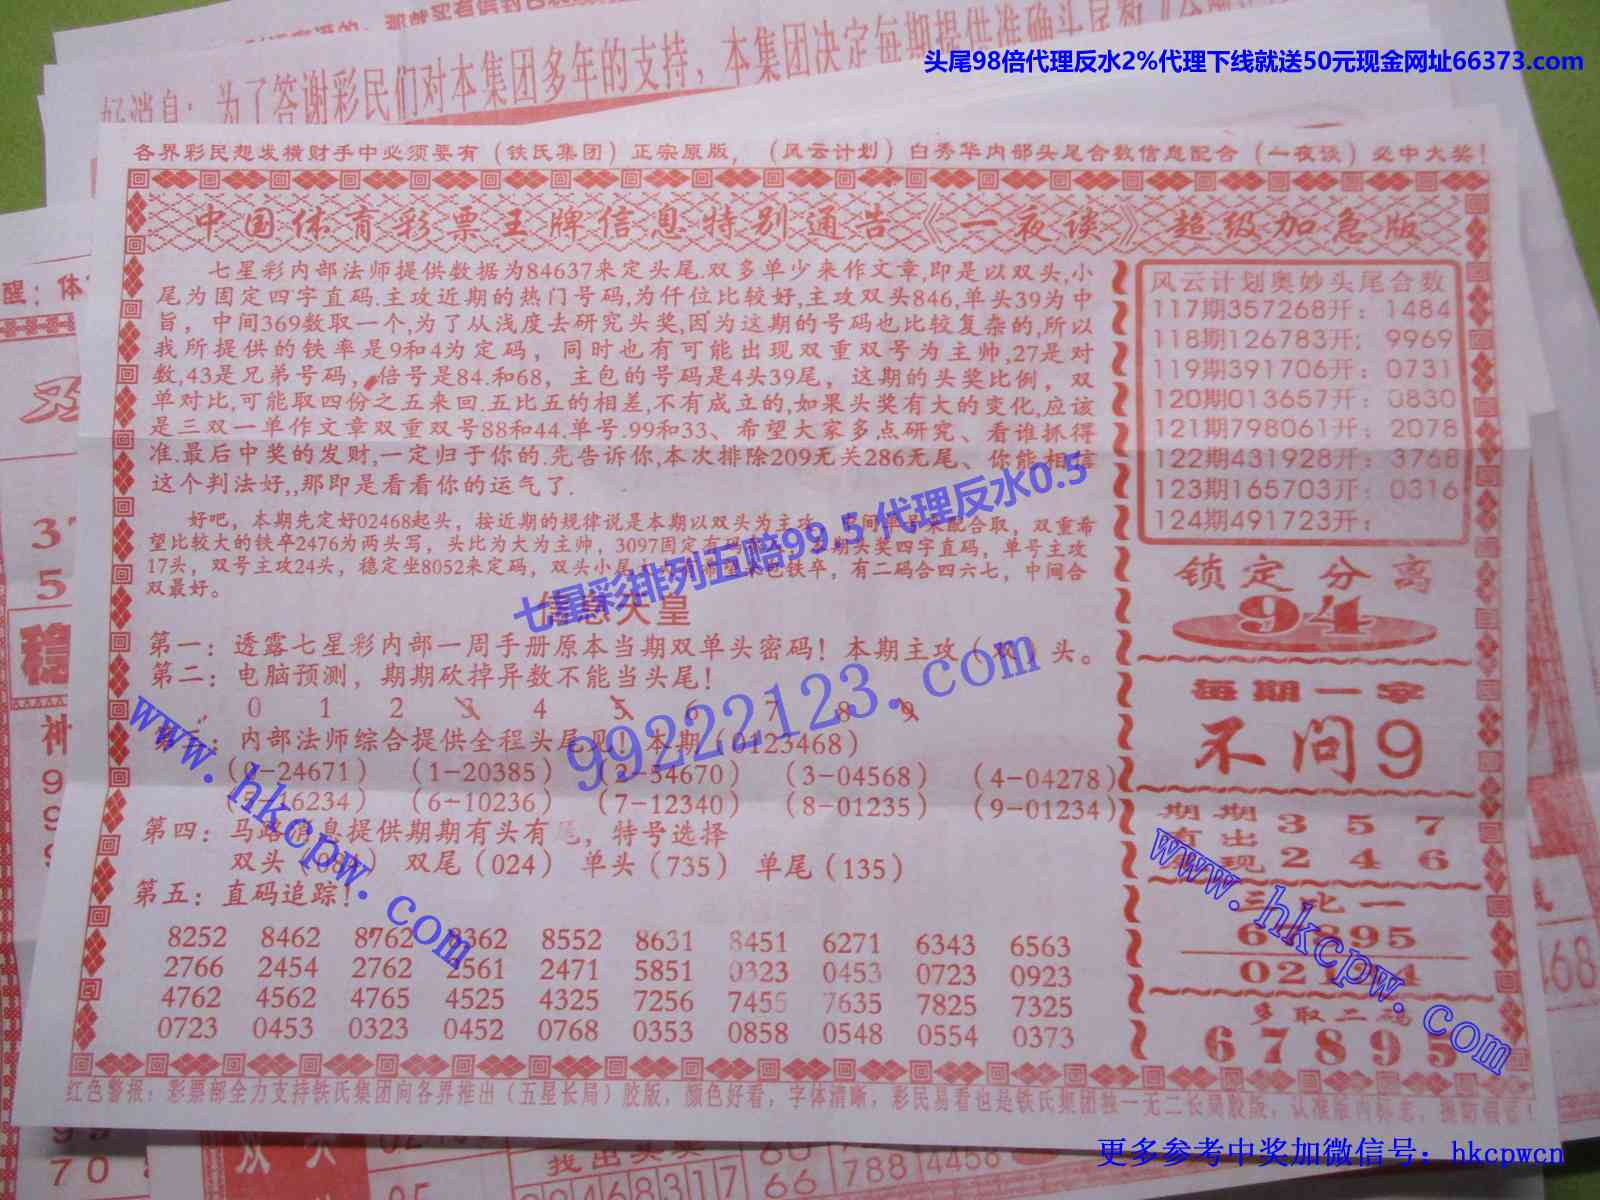 头尾98倍代理反水2%代理下线就送50元现金网址66373.com
好消息：为了答谢彩民们对本集团多年的支持，本集团决定每期提供准确头尾数
各界彩民想发横财手中必须要有（铁氏集团）正宗原版，（风云计划）白秀华内部头尾合数信息配合（一夜谈）必中大奖！
中国体育彩票王牌信息特别通告《一夜谈》超级加急版
七星彩内部法师提供数据为84637来定头尾.双多单少来作文章,即是以双头,小
尾为固定四字直码.主攻近期的热门号码,为仟位比较好,主攻双头846,单头39为中
旨，中间369数取一个,为了从浅度去研究头奖,因为这期的号码也比较复杂的,所以
我所提供的铁率是9和4为定码，同时也有可能出现双重双号为主帅,27是对
数,43是兄弟号码，倍号是84.和68，主包的号码是4头39尾，这期的头奖比例，双
单对比,可能取四份之五来回.五比五的相差,不有成立的,如果头奖有大的变化,应该
是三双一单作文章双重双号88和44.单号.99和33、希望大家多点研究、看谁抓得
准.最后中奖的发财,一定归于你的.先告诉你,本次排除209无关286无尾、你能相信
这个判法好,,那即是看看你的运气了.
好吧，本期先定好02468起头，按近期的规律说是本期以双头为主攻，中间单号来配合取，双重希
望比较大的铁卒2476为两头写，头比为大为主帅，3097固定有码 期头奖四字直码，单号主攻
17头，双号主攻24头，稳定坐8052来定码，双头小尾 包铁卒，有二码合四六七，中间合
双最好。
七星彩排列五赔99.5代理反水0.5
信息天皇
第一：透露七星彩内部一周手册原本当期双单头密码！本期主攻（双）头。
第二：电脑预测，期期砍掉异数不能当头尾！
0 1 2 3 4 5 6 7 8 9
第三：内部法师综合提供全程头尾见！本期（0123468）
（0-24671）（1-20385）（2-54670）（3-04568）（4-04278）
（5-16234）（6-10236）（7-12340）（8-01235）（9-01234）
第四：马路消息提供期期有头有尾，特号选择
双头（08 ） 双尾（024） 单头（735） 单尾（135）
第五：直码追踪！
8252 8462 8762 8362 8552 8631 8451 6271 6343 6563
2766 2454 2762 2561 2471 5851 0323 0453 0723 0923
4762 4562 4765 4525 4325 7256 7455 7635 7825 7325
0723 0453 0323 0452 0768 0353 0858 0548 0554 0373
风云计划奥妙头尾合数
117期357268开：1484
118期126783开：9969
119期391706开：0731
120期013657开：0830
121期798061开：2078
122期431928开：3768
123期165703开：0316
124期491723开：
锁定分离
94
每期一字
不问9
期期 3 5 7
有出
现 2 4 6
三比一
6 895
02 4
多取二码
67895
红色警报：彩票部全力支持铁氏集团向各界推出（五星长局）胶版，颜色好看，字体清晰，彩民易看也是铁氏集团独一无二长期胶版，认准版内标志，提防假冒！
99222123.com
www.hkcpw.com
www.hkcpw.com
更多参考中奖加微信号：hkcpwcn